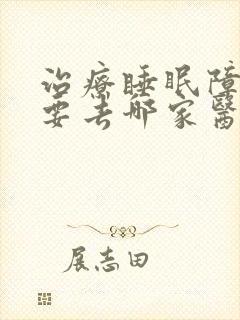 治療睡眠障
要去哪家醫
展志田